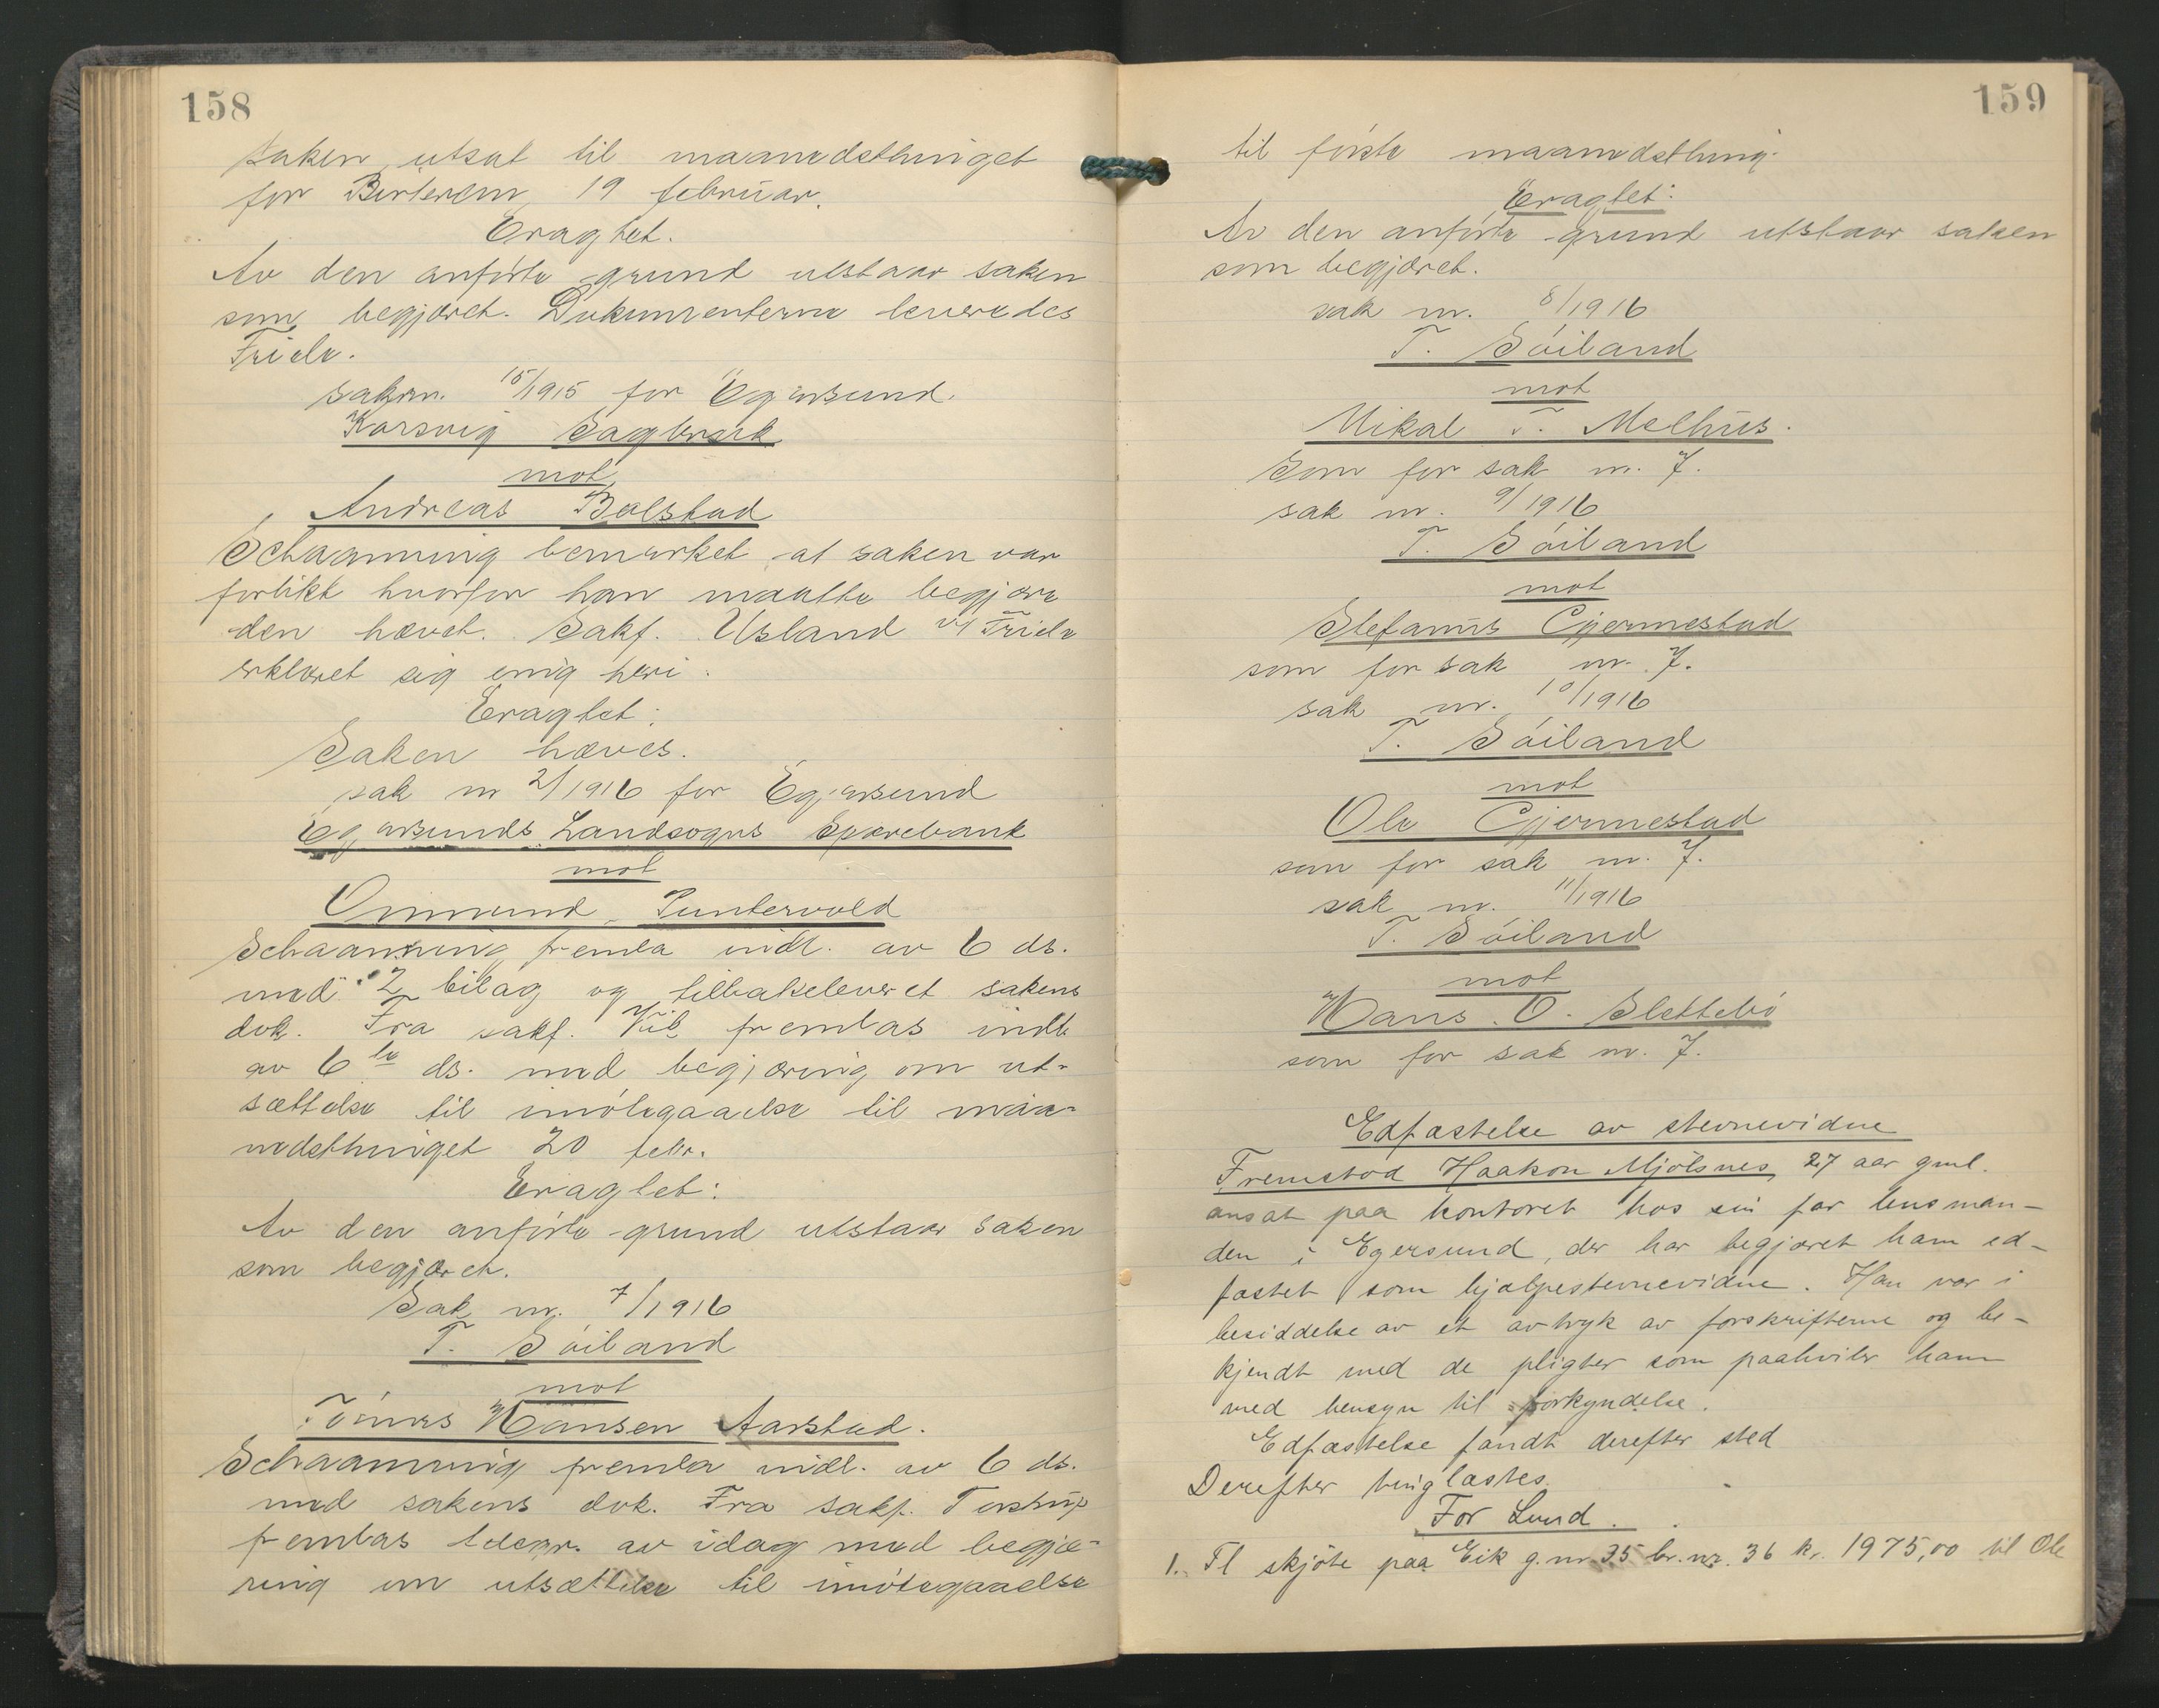 158
saken utsat til maanedsthinget
for Birkrem 19 februar.
Eragtet.
Av den anførte grund utstaar saken
som begjæret. Dokumenterne leveredes
Friele.
sak nr. 15/1915 for Egersund.
Karsvig Sagbruk
mot
Andreas Bolstad
Schaanning bemerket at saken var
forlikt hvorfor han maatte begjære
den hævet. Sakf. Usland v/ Friele
erklæret sig enig heri.
Eragtet:
Saken hæves.
sak nr 2/1916 for Egersund
Egersunds Landsogns Sparebank
mot
Ommund Puntervold
Schaanning fremla indl. av 6 ds.
med 2 bilag og tilbakeleveret sakens
dok. Fra sakf. Vik fremlas indl.
av 6te ds. med begjæring om ut-
sættelse til imøtegaaelse til maa-
nedsthinget 20 febr.
Eragtet:
Av den anførte grund utstaar saken
som begjæret.
Sak nr. 7/1916
T. Søiland
mot
Tønnes Hansen Aarstad.
Schaanning fremla indl. av 6 ds.
med sakens dok. Fra sakf. Torstrup
fremlas telegr. av idag med begjæ-
ring om utsættelse til imøtegaaelse
159
til første maanedsthing.
Eragtet:
Av den anførte grund utstaar saken
som begjæret.
sak nr. 8/1916
T. Søiland
mot
Mikal T. Melhus.
Som for sak nr. 7.
sak nr. 9/1916
T. Søiland
mot
Stefanus Gjermestad
som for sak nr. 7.
sak nr. 10/1916
T. Søiland
mot
Ole Gjermestad
som for sak nr. 7.
sak nr. 11/1916
T. Søiland
mot
Hans O. Slettebø
som for sak nr. 7.
Edfæstelse av stevnevidne
Fremstod Haakon Mjølsnes, 27 aar gml.
ansat paa kontoret hos sin far lensman-
den i Egersund, der har begjæret ham ed-
fæstet som hjælpestevnevidne. Han var i
besiddelse av et avtryk av forskrifterne og be-
kjendt med de pligter som paahviler ham
med hensyn til forkyndelse.
Edfæstelse fandt derefter sted
Derefter tinglæstes.
For Lund.
1. Fl skjøte paa Eik g.nr. 35 br.nr. 36 kr. 1975,00 til Ole